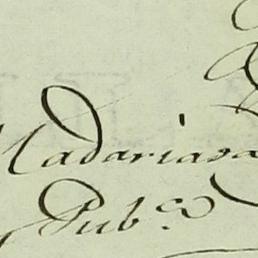 Madariasa
Pub.co